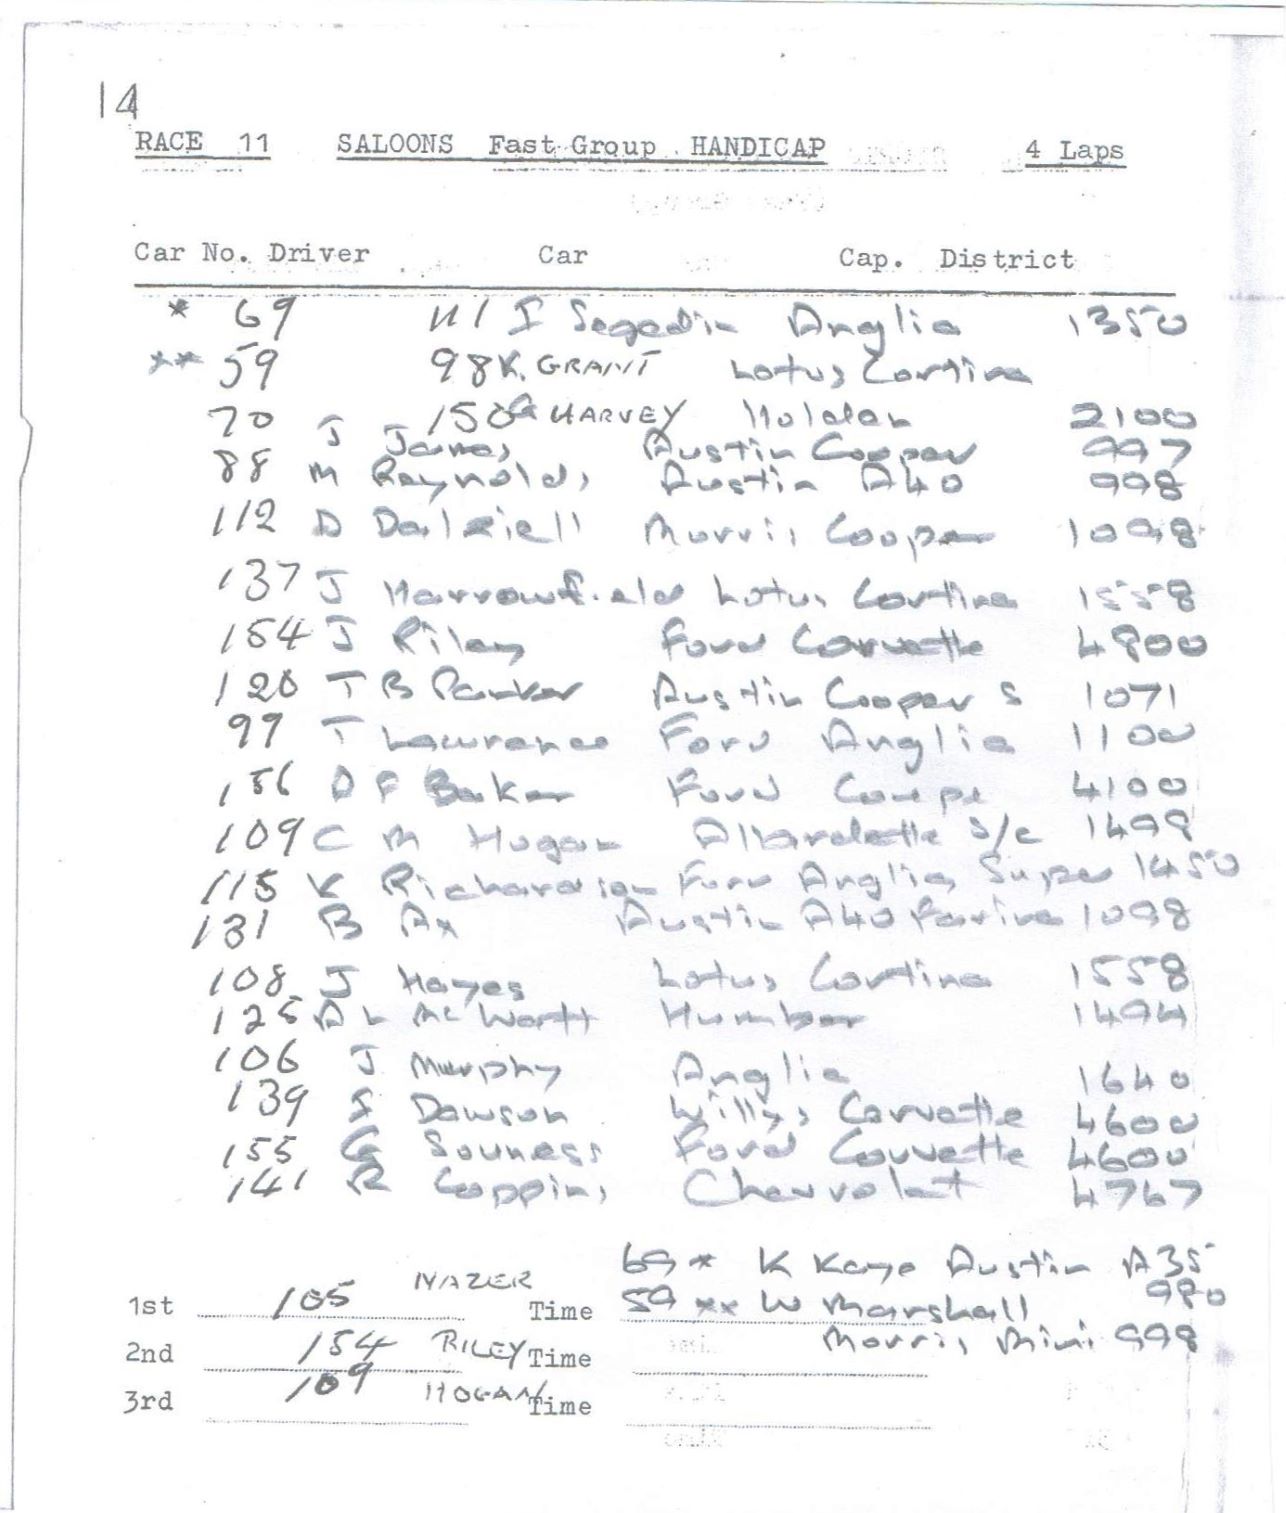 14
RACE 11 SALOONS Fast Group HANDICAP 4 Laps
Car No. Driver Car Cap. District
* 69 111 I Segedin Anglia 1350
** 59 98 K. GRANT Lotus Cortina
70 150 G HARVEY Holden 2100
J James Austin Cooper 997
88 M Reynolds Austin A40 998
112 D Dalziell Morris Cooper 1098
137 J Harrowfield Lotus Cortina 1558
154 J Riley Ford Corvette 4800
120 T B Parker Austin Cooper S 1071
99 T Lawrence Ford Anglia 1100
156 D F Baker Ford Coupe 4100
109 C M Hogan Allardette S/c 1498
115 K Richardson Ford Anglia Super 1450
131 B Ax Austin A40 Farina 1098
108 J Hayes Lotus Cortina 1558
125 A L McWatt Humber 1494
106 J Murphy Anglia 1640
139 S Dawson Willys Corvette 4600
155 G Souness Ford Corvette 4600
141 R Coppins Chevrolet 4767
69 * K Kaye Austin A35
980
1st 105 NAZER Time 59 ** W Marshall
Morris Mini 998
2nd 154 RILEY Time
3rd 109 HOGAN Time